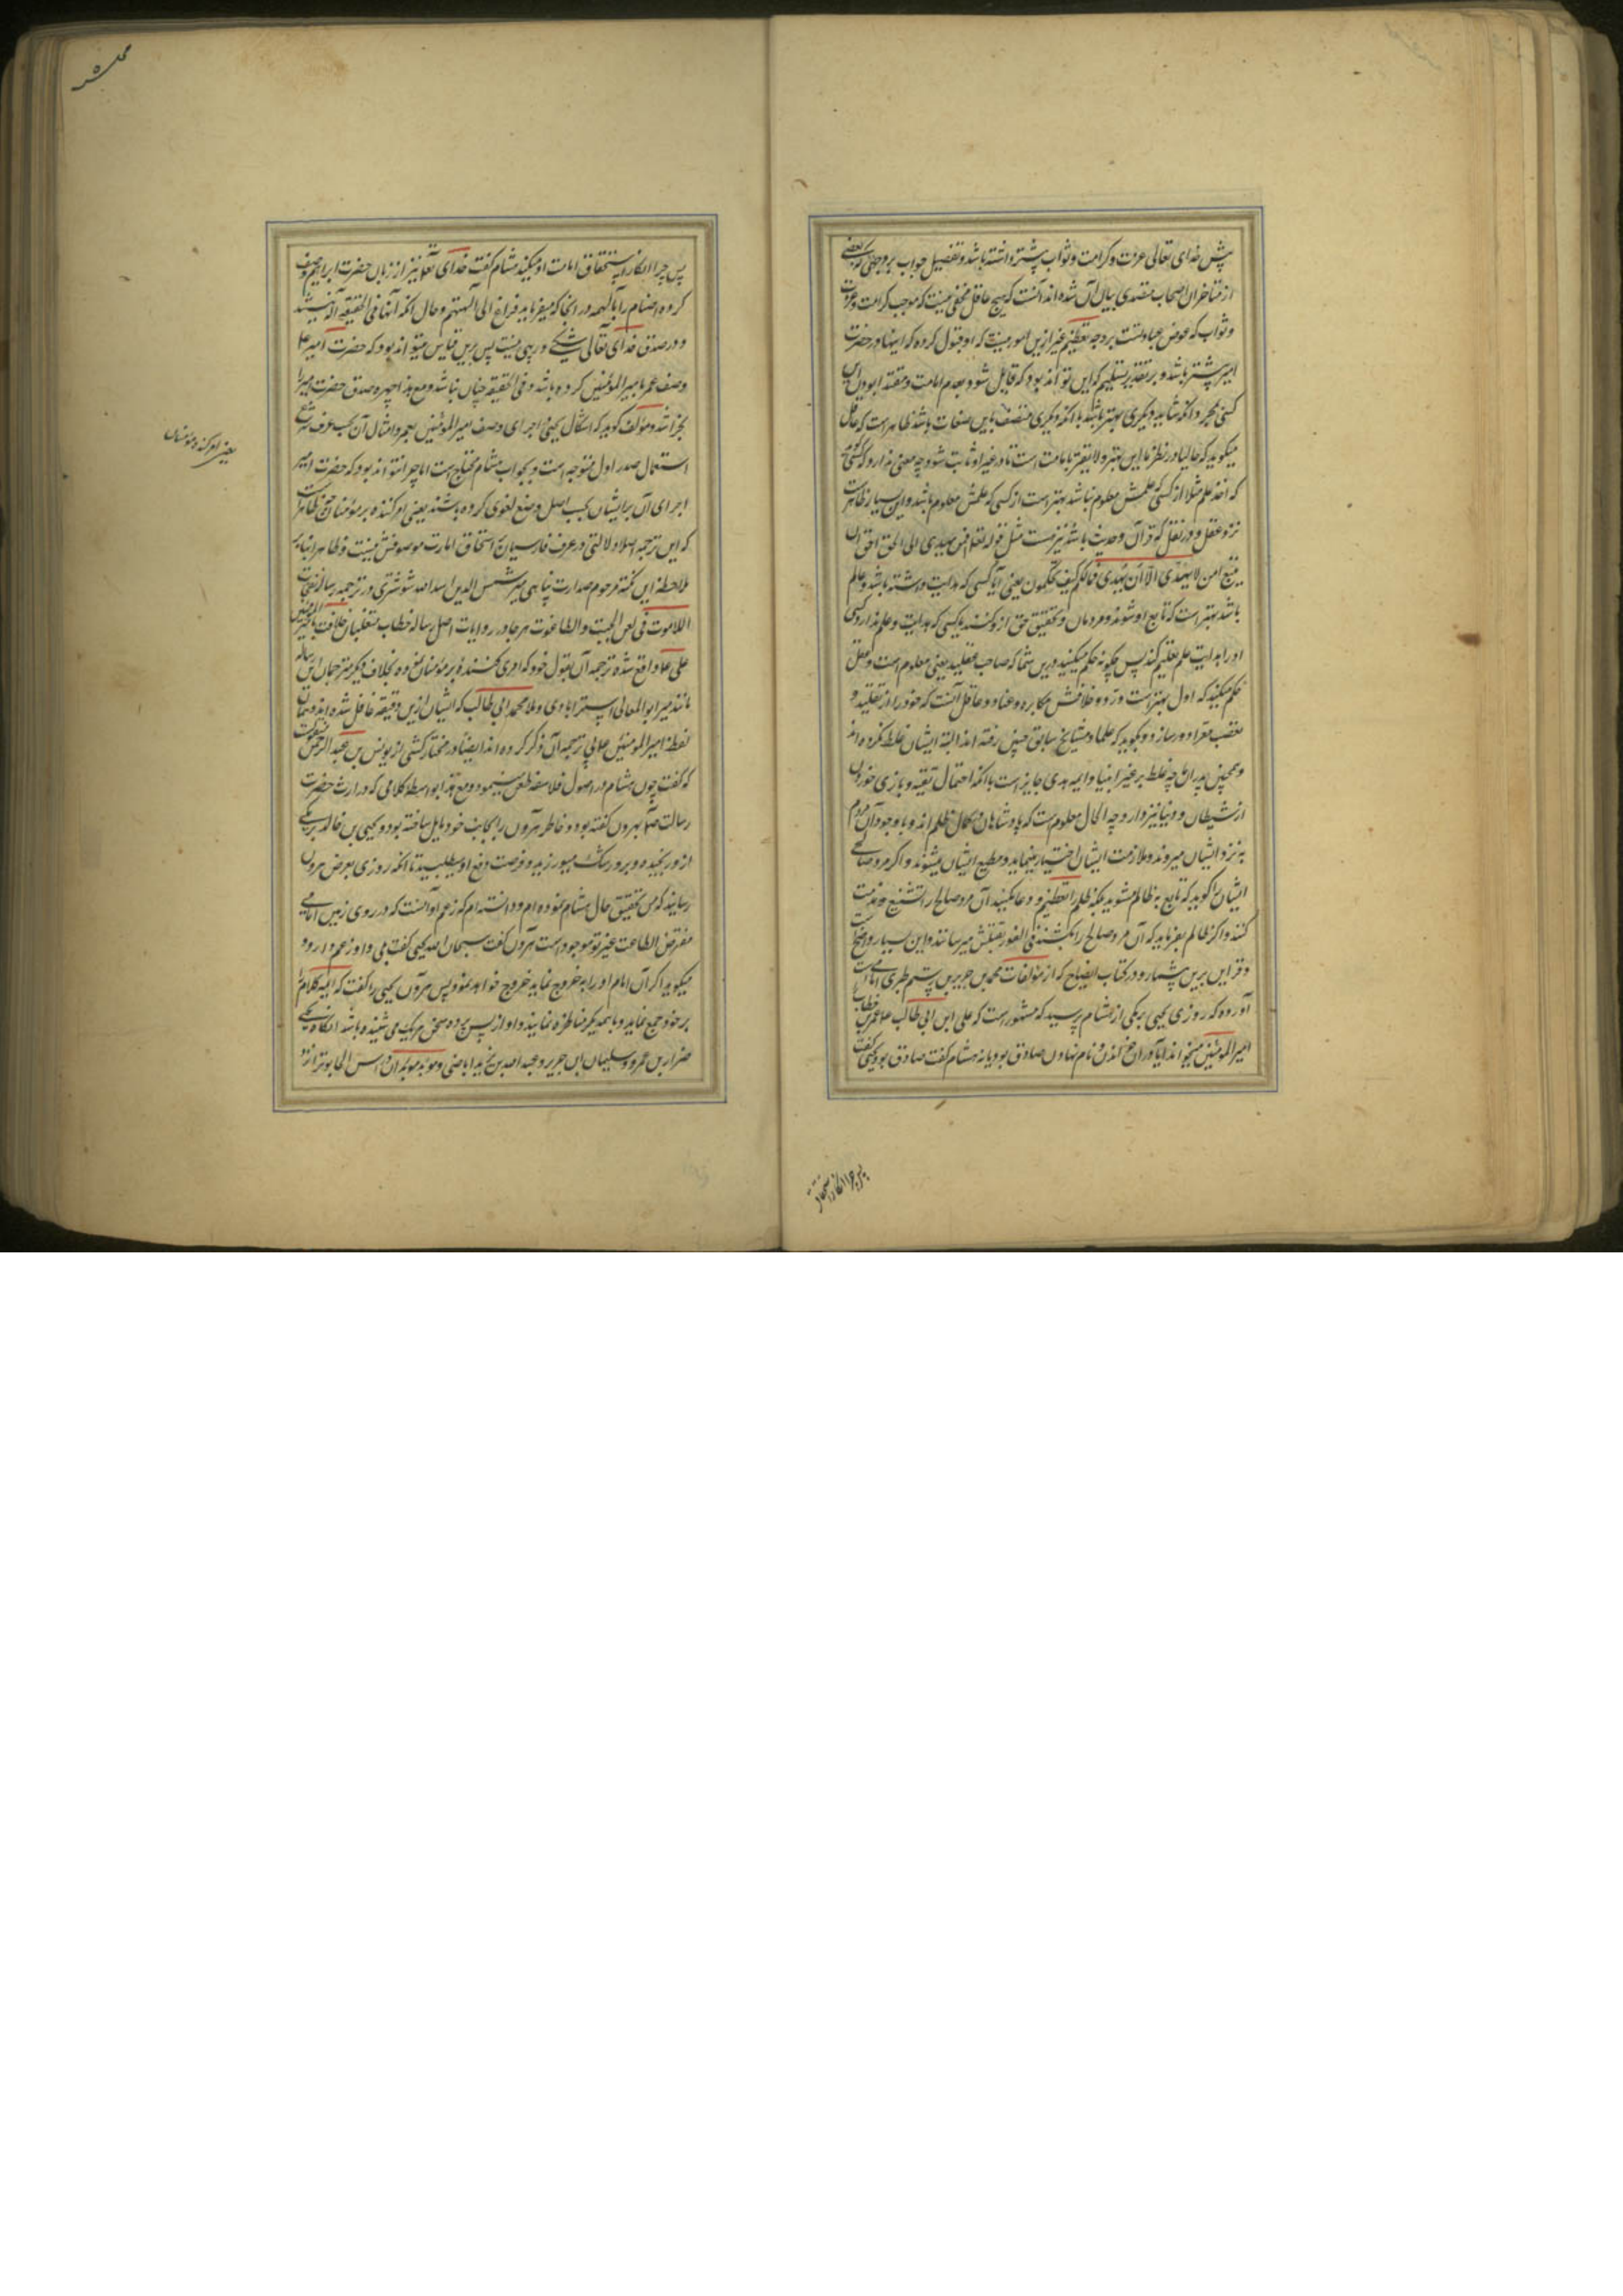 پیش خدای تعالی عزت و کرامت و ثواب بیشتر داشته باشد و تفصیل جواب بر وجهی که بعضی
از متاخران اصحاب متصدی بیان آن شده اند آنست که هیچ عاقل مخفی نیست که موجب کرامت و عزت
و ثواب که عوض عبادتست بر وجه تعظیم غیر ازین امور نیست که او قبول کرده که اینها در حضرت
امیر بیشتر باشد و بر تقدیر تسلیم که این تواند بود که قایل شود بعدم امامت و مقتدا بودن این
کسی بمجرد آنکه شاید دیگری بهتر باشد با آنکه دیگری متصف باین صفات باشد ظاهر است که عاقل
میگوید که حالیا در نظر ما این بهتر و لایقتر بامامت است تا در غیر او ثابت شود چه معنی ندارد که کسی گوید
که اخذ علم مثلا از کسی که علمش معلوم نباشد بهتر است از کسی که علمش معلوم باشد و این بسیار ظاهرست
نزد عقل و در نقل که قرآن و حدیث باشد نیز هست مثل قوله تعالی افمن یهدی الی الحق احق ان
یتبع امن لا یهدی الا ان یهدی فمالکم کیف تحکمون یعنی آیا کسی که هدایت داشته باشد و عالم
باشد بهتر است که تابع او شوند مردمان و تحقیق حق ازو کنند یا کسی که هدایت و علم ندارد و کسی
او را هدایت علم تعلیم کند پس چگونه حکم میکنید درین شما که صاحب عقلید یعنی معلوم است و عقل
حکم میکند که اول بهتر است و رد و خلافش مکابره و عناد و عاقل آنست که خود را از تقلید و
تعصب مقرا دور سازد و نگوید که علما و مشایخ سابق چنین رفته اند البته ایشان غلط نکرده اند
و همچنین پدران چه غلط بر غیر انبیا و ایمه هدی جایز است با آنکه احتمال تقیه و بازی خوردن
از شیطان و دنیا نیز دارد چه الحال معلومست که پادشاهان بکمال ظلم اند و با وجود آن مردم
به نزد ایشان میروند و ملازمت ایشان اختیار مینمایند و مطیع ایشان میشوند و اگر مرد صالحی
ایشان را گوید که تابع به ظالم مشوید بلکه ظلم را تعظیم و دعا میکنید آن مرد صالح را تشنیع و مذمت
کنند و اگر ظالم بفرماید که آن مرد صالح را بکشند فی الفور بقتلش میرسانند و این بسیار واضحست
و قراین برین بیشمار و در کتاب ایضاح که از مؤلفات محمد بن جریر بن رستم طبری امامی است
آورده که روزی یحیی برمکی از هشام پرسید که مشهور است که علی ابن ابی طالب ع عمر بن خطاب را
امیر المومنین میخواند آیا در آن خواندن و نام نهادن صادق بود یا نه هشام گفت صادق بود یحیی گفت
پس چرا انکار استحقاق
پس چرا انکار استحقاق امامت او میکنید هشام گفت خدای تعالی نیز از زبان حضرت ابراهیم وصف
کرده اصنام را بآلهه در آنجا که میفرماید فراغ الی آلهتهم و حال آنکه آنها فی الحقیقه آله نیستند
و در صدق خدای تعالی شکی و ریبی نیست پس برین قیاس میتواند بود که حضرت امیر ع
وصف عمر بامیر المؤمنین کرده باشد و فی الحقیقه چنان نباشد و مع هذا چهره صدق حضرت امیر را
نخراشد و مؤلف گوید که اشکال یحیی اجرای وصف امیر المؤمنین بعمر و امثال آن بحسب عرف شرع
استعمال صدر اول متوجه است و بجواب هشام محتاج است اما چرا نتواند بود که حضرت امیر
اجرای آن بر ایشان بحسب اصل وضع لغوی کرده باشند یعنی امر کننده بر مؤمنان و ظاهرست
که این ترجمه اصلا دلالتی در عرف فارسیان بر استحقاق امارت موصوفش نیست و ظاهرا بنابر
ملاحظه این نکته مرحوم صدارت پناهی میر شمس الدین اسد الله شوشتری در ترجمه رساله نفحات
اللاهوت فی لعن الجبت و الطاغوت هر جا در روایات اصل رساله خطاب متغلبان خلافت بامیر المؤمنین
علی ع واقع شده ترجمه آن بقول خود که امری کننده بر مؤمنان نموده بخلاف دیگر مترجمان این رساله
مانند میر ابو المعالی استرابادی و ملا محمد ابی طالب که ایشان ازین دقیقه غافل شده اند و همان
لفظ امیر المومنین علی بی ترجمه آن ذکر کرده اند ایضا در مختار کشی از یونس بن عبد الرحمن منقولست
که گفت چون هشام در اصول فلاسفه طعن مینمود و مع هذا بواسطه کلامی که در ارث حضرت
رسالت ص بهرون گفته بود و خاطر هرون را بجانب خود مایل ساخته بود و یحیی بن خالد برمکی
ازو رنجیده و برو رشک میورزید و فرصت دفع او میطلبید تا آنکه روزی بعرض هرون
رسانید که من تحقیق حال هشام نموده ام و دانسته ام که زعم او آنست که در روی زمین امامی
مفترض الطاعت غیر تو موجود است هرون گفت سبحان الله یحیی گفت بلی و او زعم دارد و
میگوید اگر آن امام او را بخروج نماید خروج خواهد نمود پس هرون یحیی را گفت که اهل کلام را
بر خود جمع نماید و با همدیگر مناظره نمایند و او از پس پرده سخن هر یک می شنیده باشد آنگاه یحیی
ضرار بن عمرو و سلیمان ابن جریر و عبد الله بن یزید اباضی و موبد موبدان و راس الجالوت را نزد
یعنی امر کننده مؤمنان